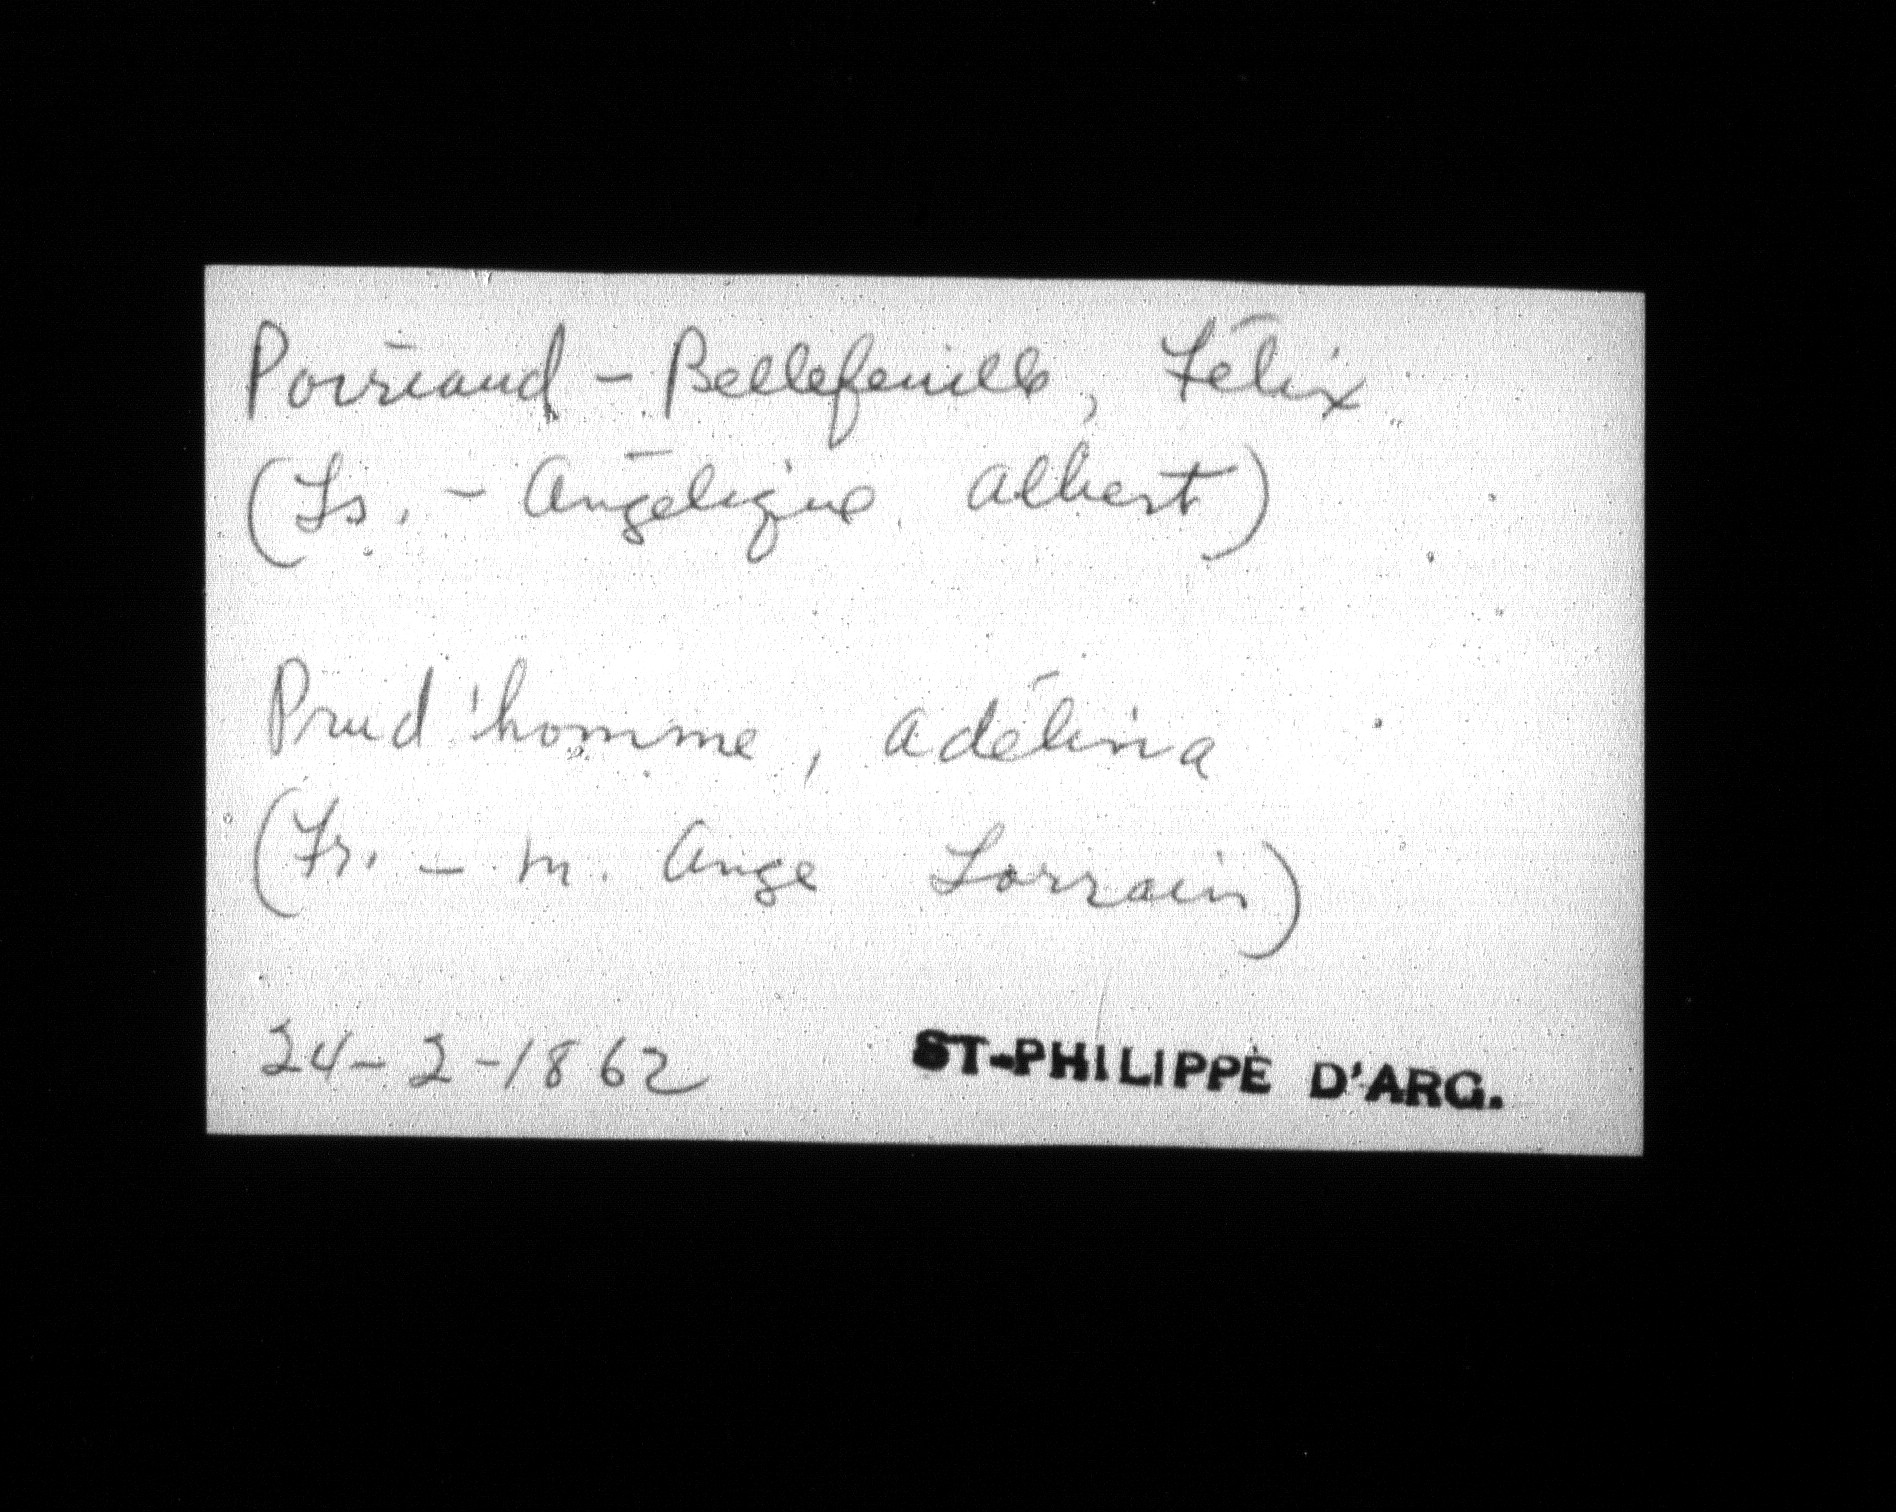 Poiriaud - Bellefeuille, Félix
(Ls. - Angélique Albert)
Prud'homme, Adélina
(Fr. - M. Ange Lorrain)
24-2-1862 ST-PHILIPPE D'ARG.